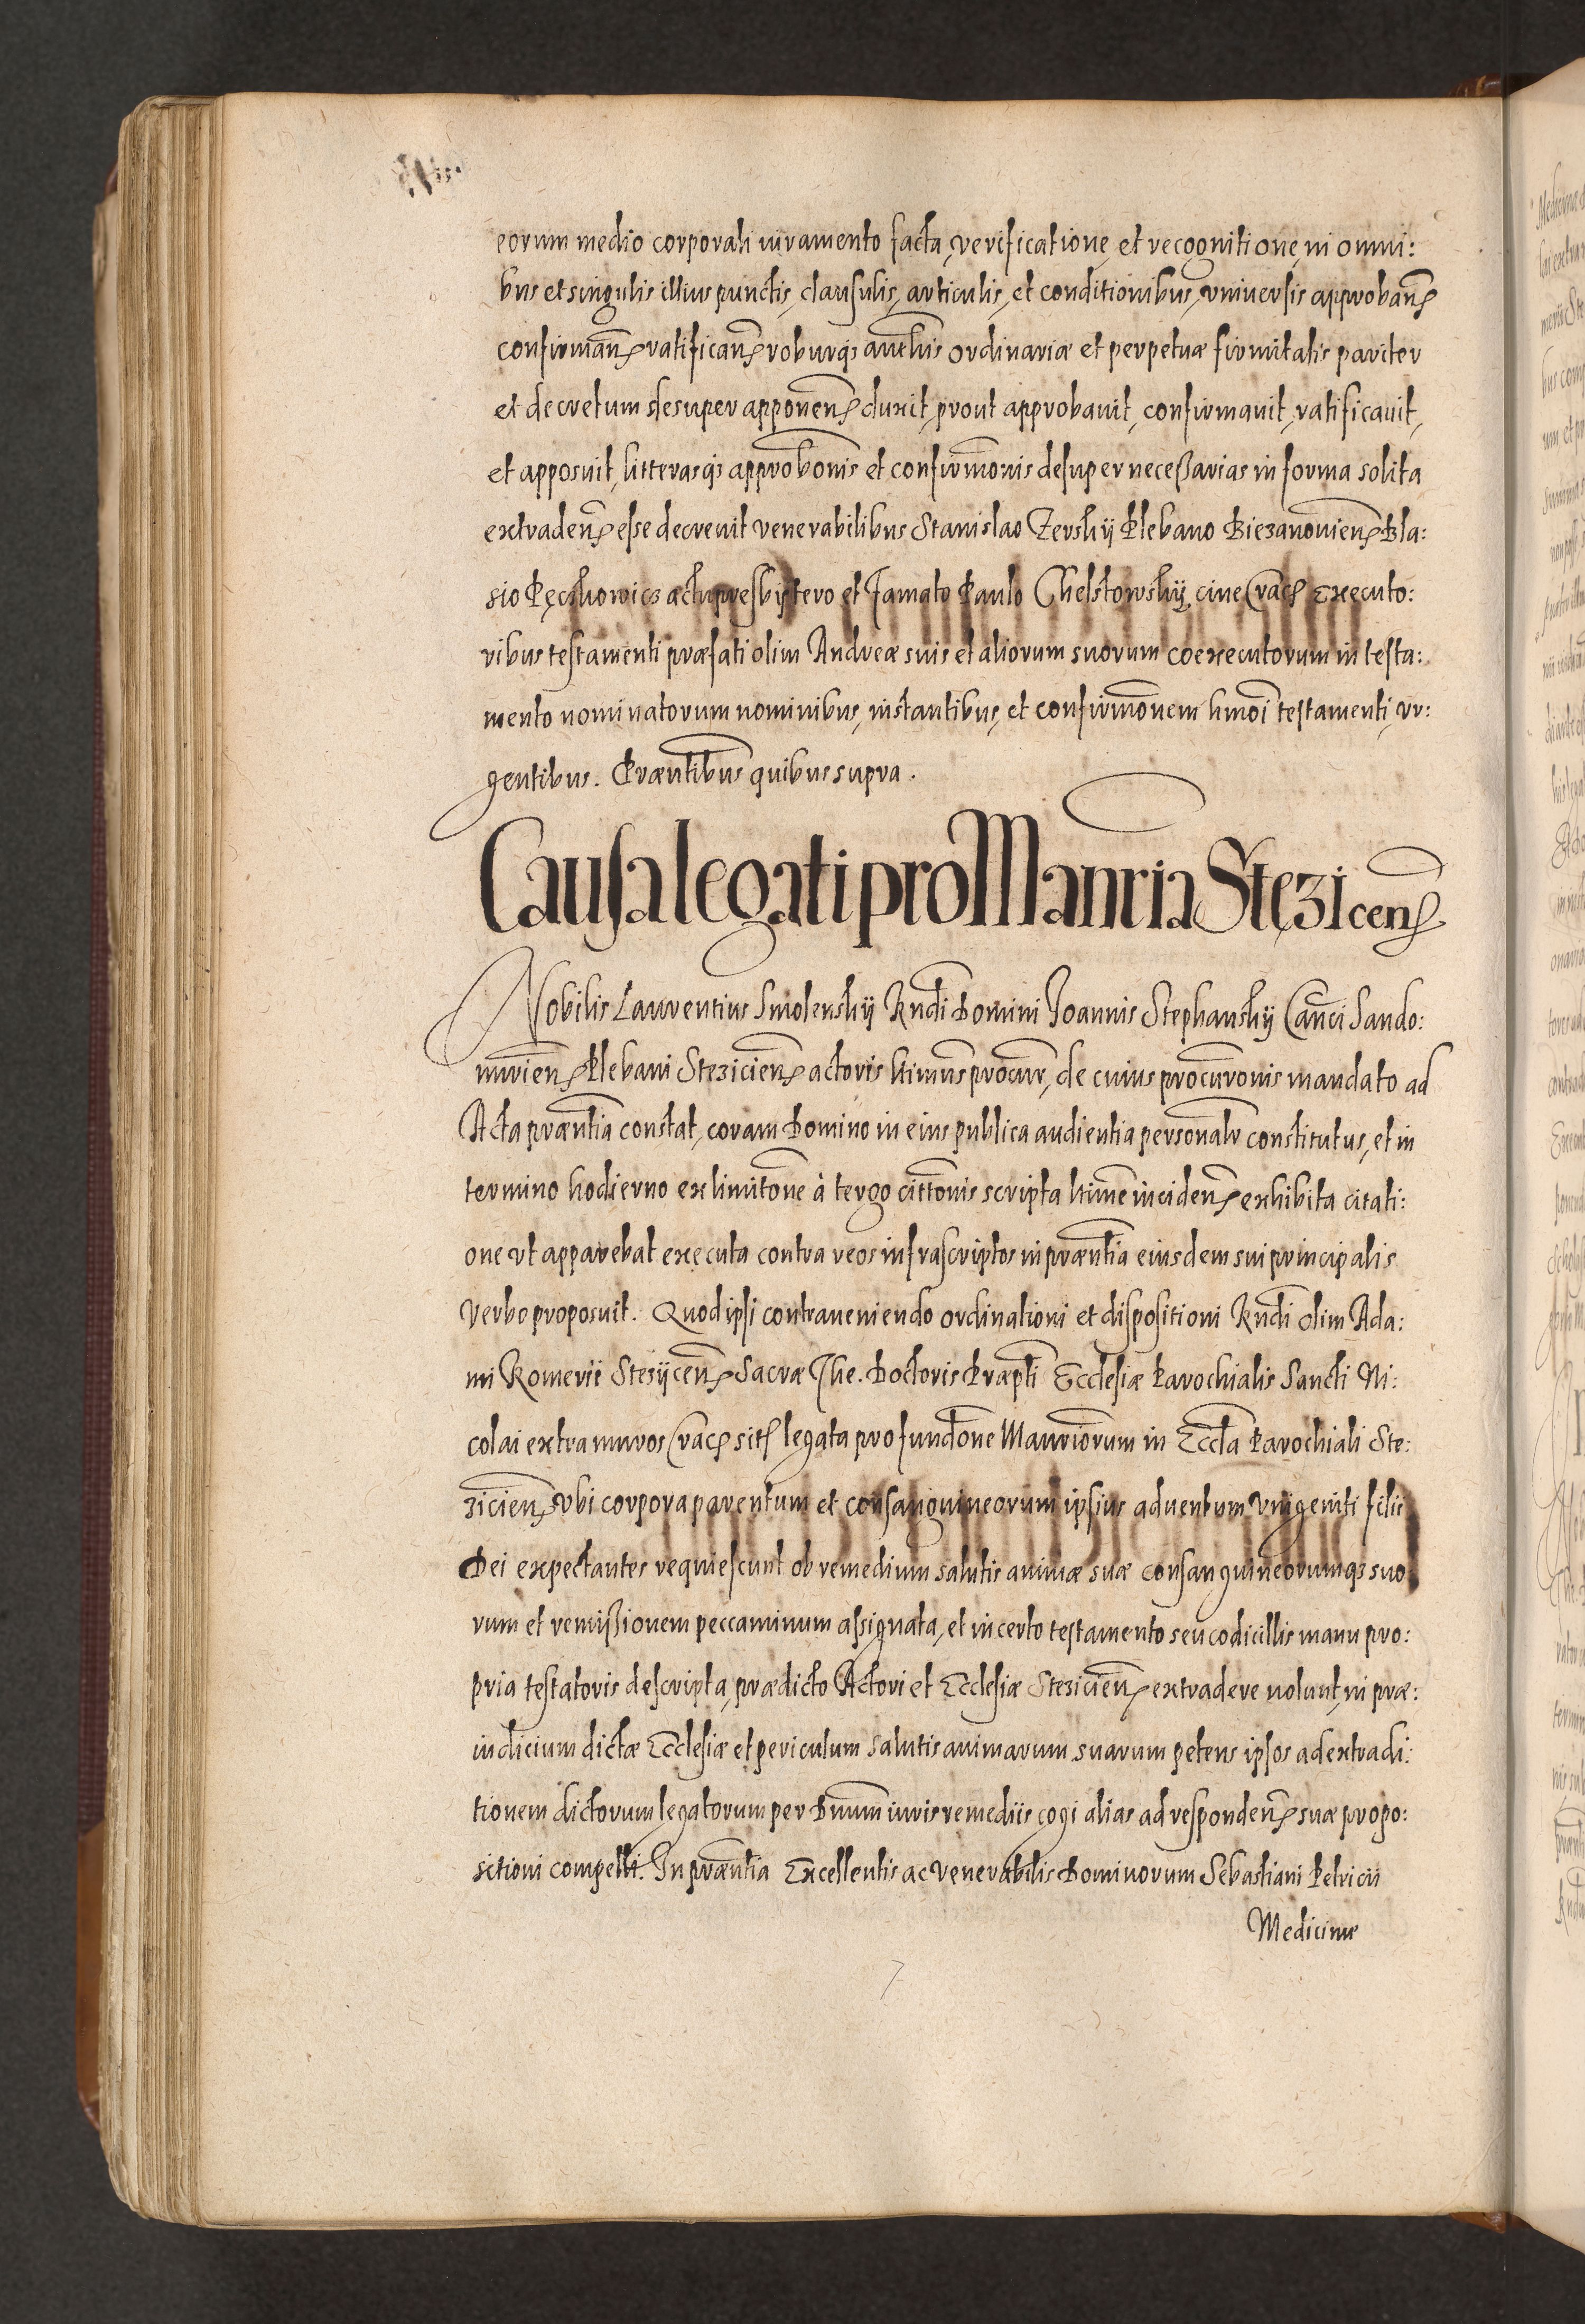 eorum medio corporali iuramento facta, verificatione, et recognitione, in omni:
bus et singulis illius punctis, clausulis, articulis, et conditionibus, vniuersis approban̄
confirman̄ ratifican̄ roburq; authīs ordinariæ et perpetuæ firmitatis pariter
et decretum desuper apponen̄ duxit, prout approbauit, confirmauit, ratificauit,
et apposuit, litterasq; approbōnis et confirmōnis desuper necessarias in forma solita
extraden̄ esse decreuit venerabilibus Stanislao Zerskij Plebano Biezanouien̄ Bla:
sio Pęczkowicz actu presbytero et Famato Paulo Chelstowskij, ciue Crac̄ Executo:
ribus testamenti præfati olim Andreæ suis et aliorum suorum coexecutorum in testa:
mento nominatorum nominibus, instantibus, et confirmōnem hmōi testamenti, vr:
gentibus. Præntibus quibus supra.
Causa legati pro Manria Stęzicen̄
Nobilis Laurentius Smolenskij Rndi Domini Joannis Stephanskij Canci Sando:
mirien̄ Plebani Stezicien̄ actoris ltimus procur, de cuius procurōnis mandato ad
Acta præntia constat, coram Domino in eius publica audientia personalr constitutus, et in
termino hodierno ex limitōne à tergo cittōnis scripta ltime inciden̄ exhibita citati:
one vt apparebat executa contra reos infrascriptos in præntia eiusdem sui principalis
Verbo proposuit. Quod ipsi contraueniendo ordinationi et dispositioni Rndi olim Ada:
mi Romerii Stezijcen̄ Sacræ The. Doctoris Præpti Ecclesiæ Parochialis Sancti Ni:
colai extra muros Crac̄ sit̄ legata pro fundōne Manriōrum in Eccla Parochiali Ste:
zicien̄ vbi corpora parentum et consanguineorum ipsius aduentum vnigeniti filii
Dei expectantes requiescunt ob remedium salutis animæ suæ consanguineorumq; suo
rum et remissionem peccaminum assignata, et in certo testamento seu codicillis manu pro:
pria testatoris descripta, prædicto Actori et Ecclesiæ Stezicien̄ extradere nolunt, in præ:
iudicium dictæ Ecclesiæ et periculum salutis animarum suarum petens ipsos ad extradi:
tionem dictorum legatorum per Dnum iuris remediis cogi alias ad responden̄ suæ propo:
sitioni compelli. In præntia Excellentis ac Venerabilis Dominorum Sebastiani Petricii
Medicinæ